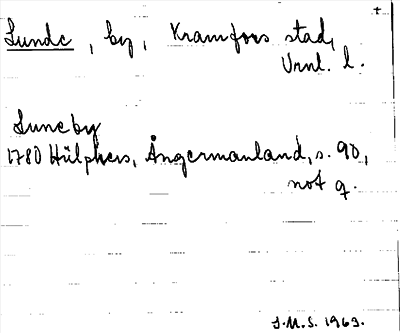 Lunde, by, Kramfors stad,
Vrnl. l.
Luneby
1780 Hülphers, Ångermanland, s. 90,
not q.
S.M.S. 1963.